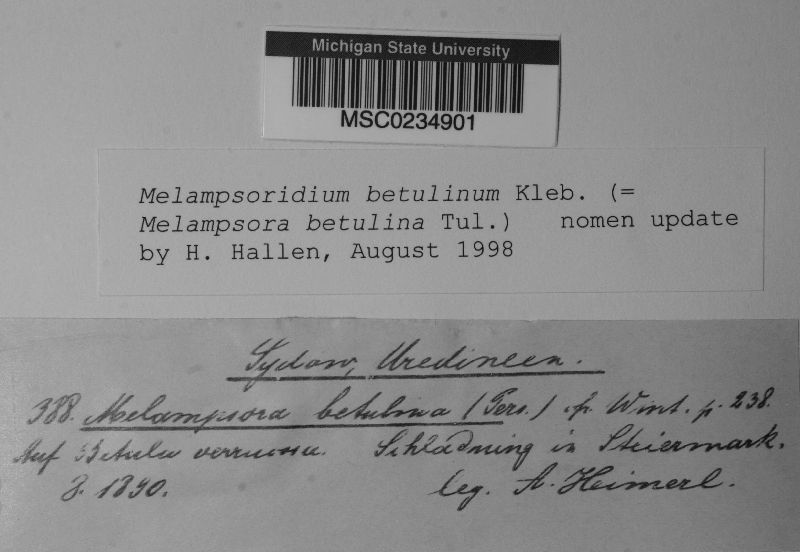 Michigan State University
MSC0234901
Melampsoridium betulinum Kleb. (=
Melampsora betulina Tul.) nomen update
by H. Hallen, August 1998
Sydow, Uredineen.
388. Melampsora betulina (Pers.) cfr. Wint. p. 238.
Auf Betula verrucosa. Schladming in Steiermark.
8. 1890. leg. A. Heimerl.